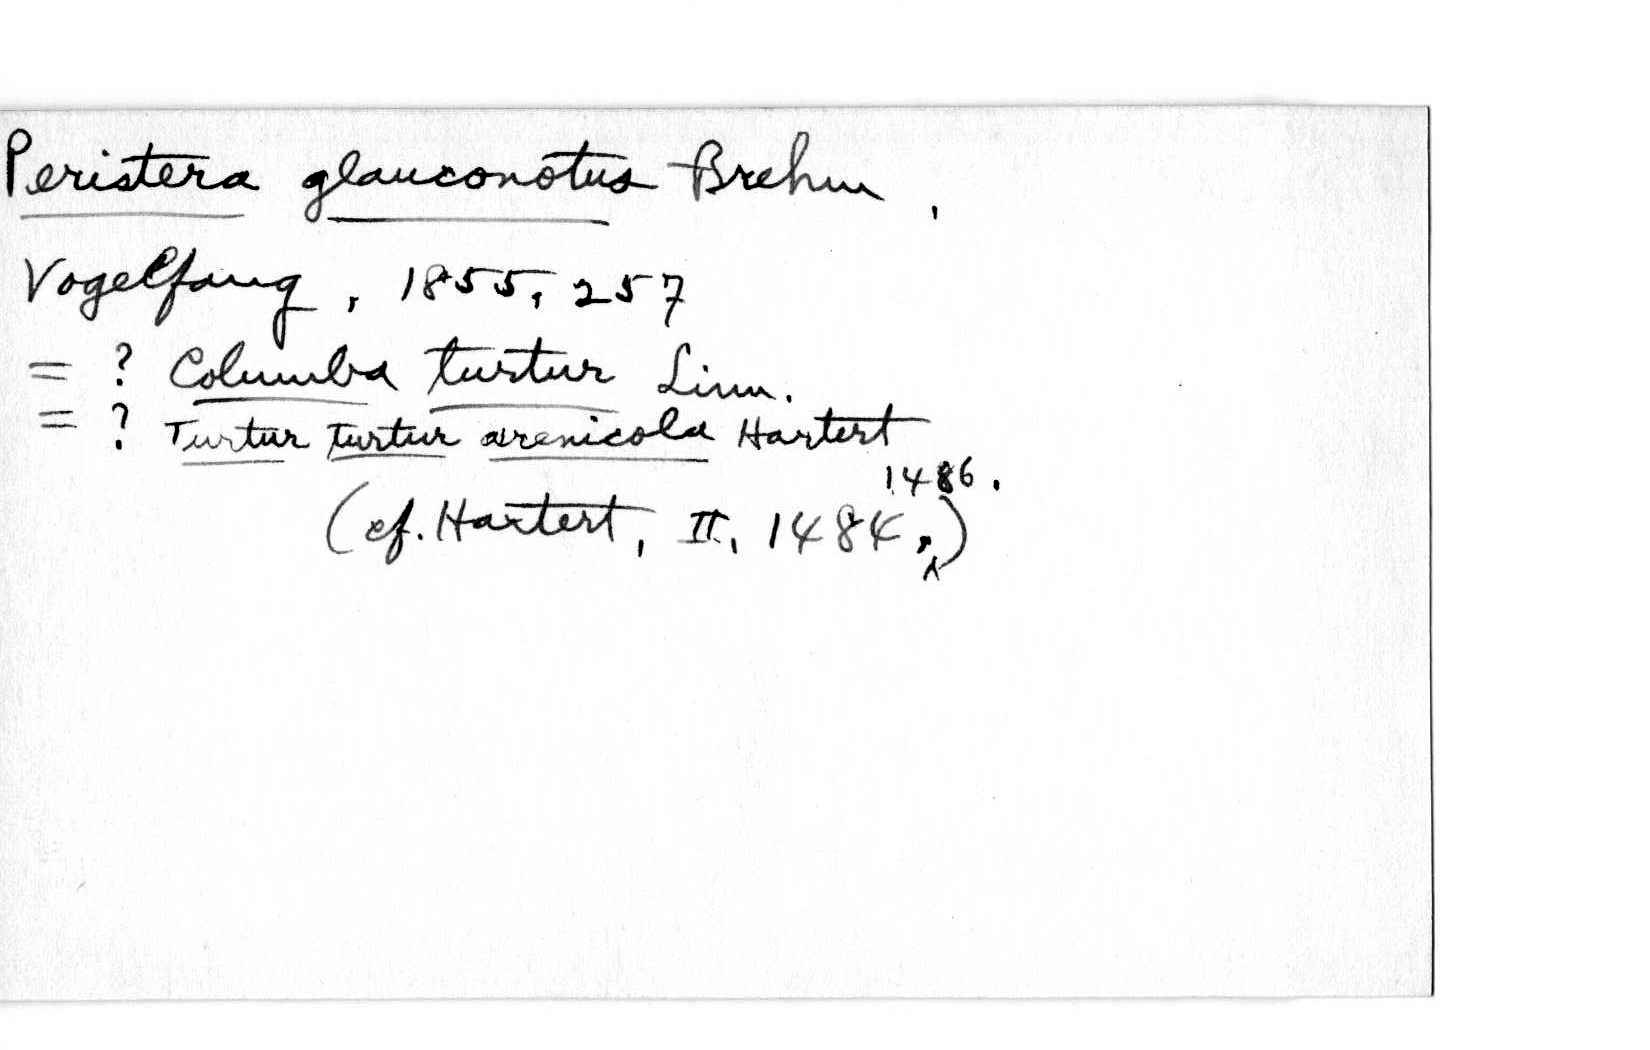 Peristera glauconotus Brehm,
Vogelfang, 1855, 257
= ? Columba turtur Linn.
= ? Turtur turtur arenicola Hartert
(cf. Hartert, II, 1484, 1486.)